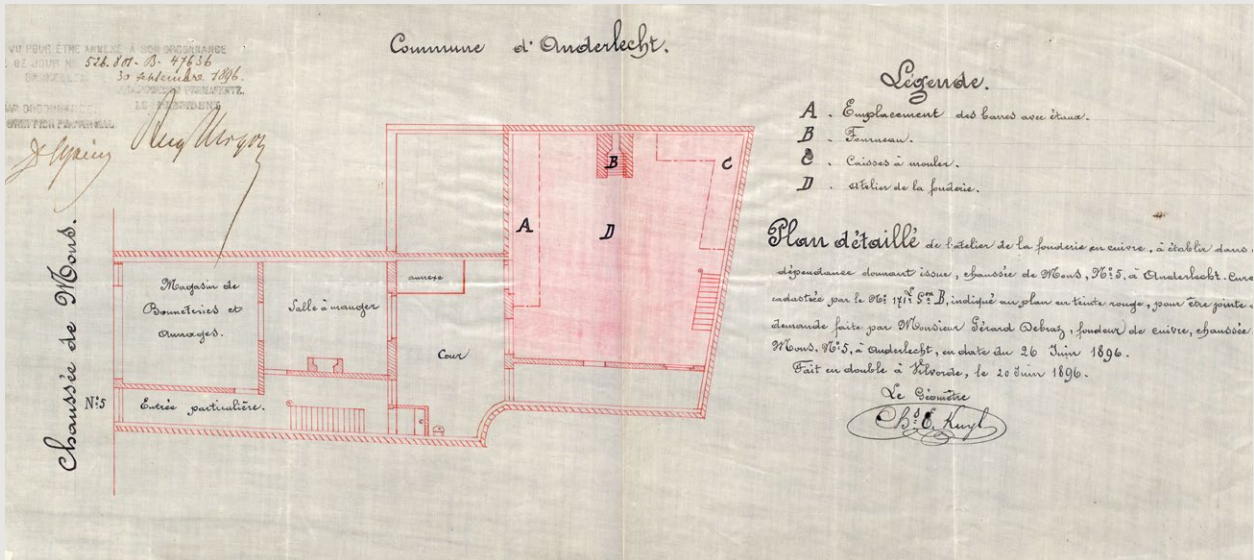 VU POUR ÊTRE ANNEXÉ À SON ORDONNANCE
DE CE JOUR Nº 526.801-B-47636
BRUXELLES 30 septembre 1896.
PERMANENTE.
LE PRÉSIDENT
PAR ORDONNANCE:
Commune d'Anderlecht.
Légende.
A. Emplacement des barres avec étaux.
B. Fourneau.
C. Caisses à mouler.
D. Atelier de la fonderie.
Plan détaillé de l'atelier de la fonderie en cuivre, à établir dans
dépendance donnant issue, chaussée de Mons, Nº5, à Anderlecht-Cure
cadastrée par le Nº Son B, indiqué au plan en teinte rouge, pour être jointe
demande faite par Monsieur Gérard Debraz, fondeur de cuivre, chaussée
Mons, Nº5, à Anderlecht, en date du 26 Juin 1896.
Fait en double à Vilvorde, le 20 Juin 1896.
Le Géomètre
Chs E. Kuyl
Chaussée de Mons.
Nº5
Magasin de
Bonneteries et
Aunages.
Salle à manger
annexe
Cour
Entrée particulière.
A
B
C
D